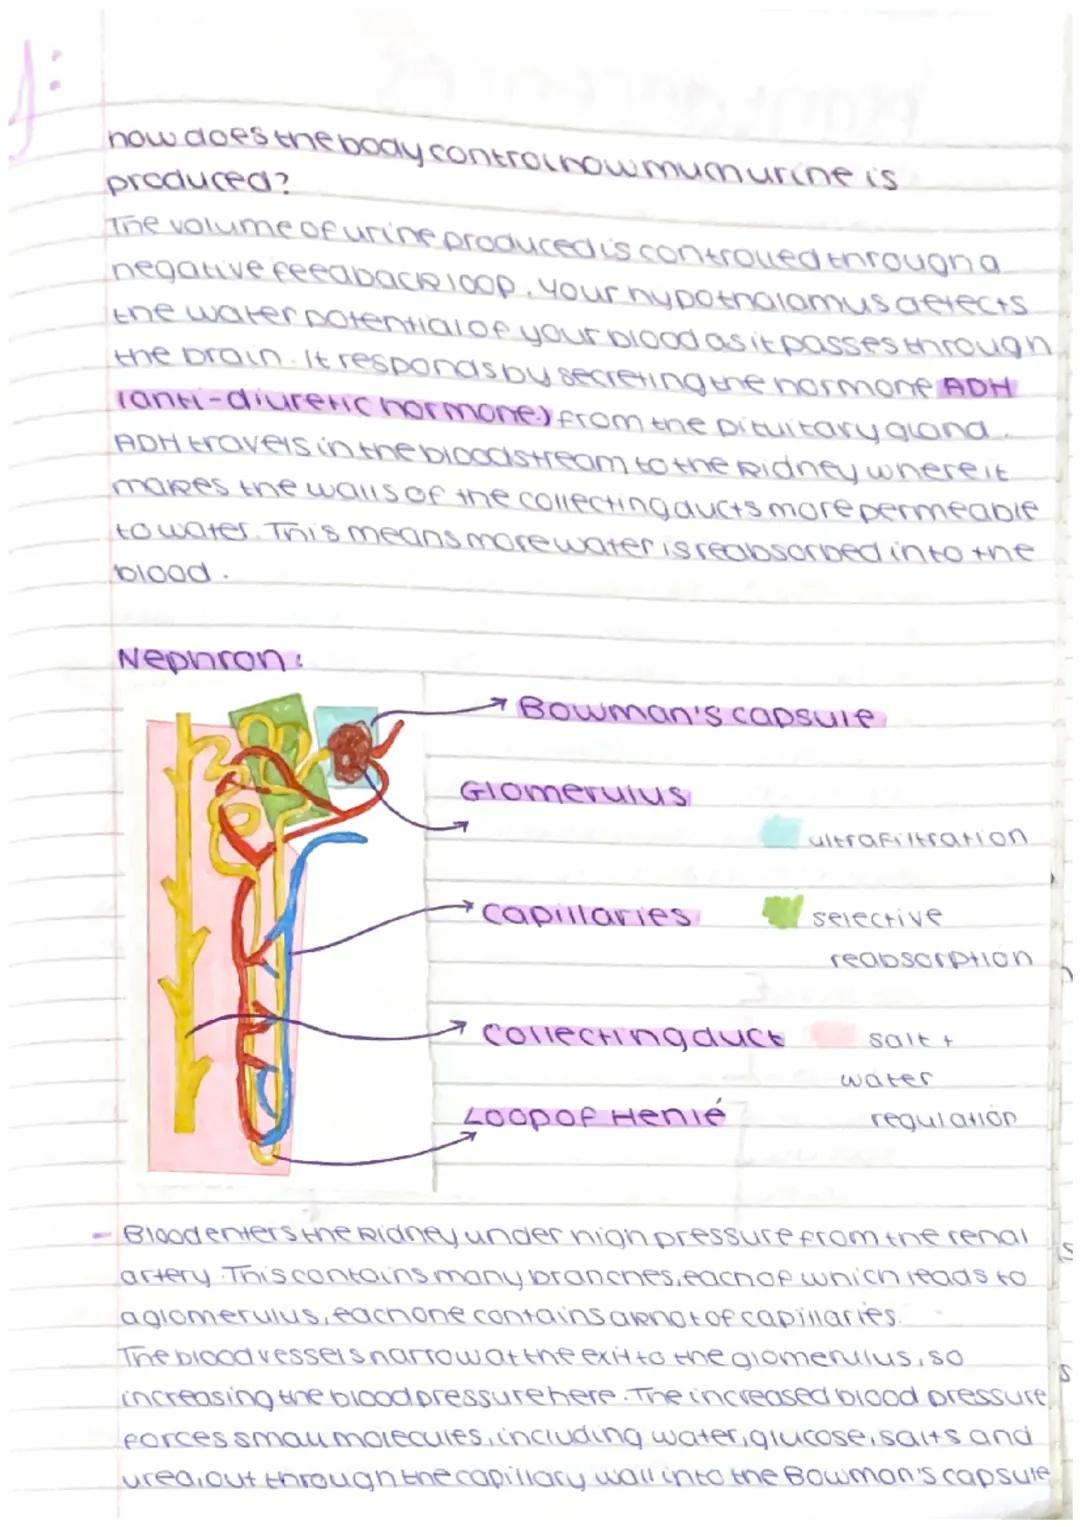 how does the body control how much urine is
produced?
The volume of urine produced is controlled through a
negative feedback loop. Your hypothalamus detects
the water potential of your blood as it passes through
the brain. It responds by secreting the hormone ADH
(anti-diuretic hormone) from the pituitary gland.
ADH travels in the bloodstream to the kidney where it
makes the walls of the collecting ducts more permeable
to water. This means more water is reabsorbed into the
blood.
Nephron:
Bowman's capsule
Glomerulus
ultrafiltration
capillaries
selective
reabsorption
collecting duct
salt +
water
regulation
Loop of Henlé
- Blood enters the kidney under high pressure from the renal
artery. This contains many branches, each of which leads to
a glomerulus, each one contains a knot of capillaries.
The blood vessels narrow at the exit to the glomerulus, so
increasing the blood pressure here. The increased blood pressure
forces small molecules, including water, glucose, salts and
urea, out through the capillary wall into the Bowman's capsule